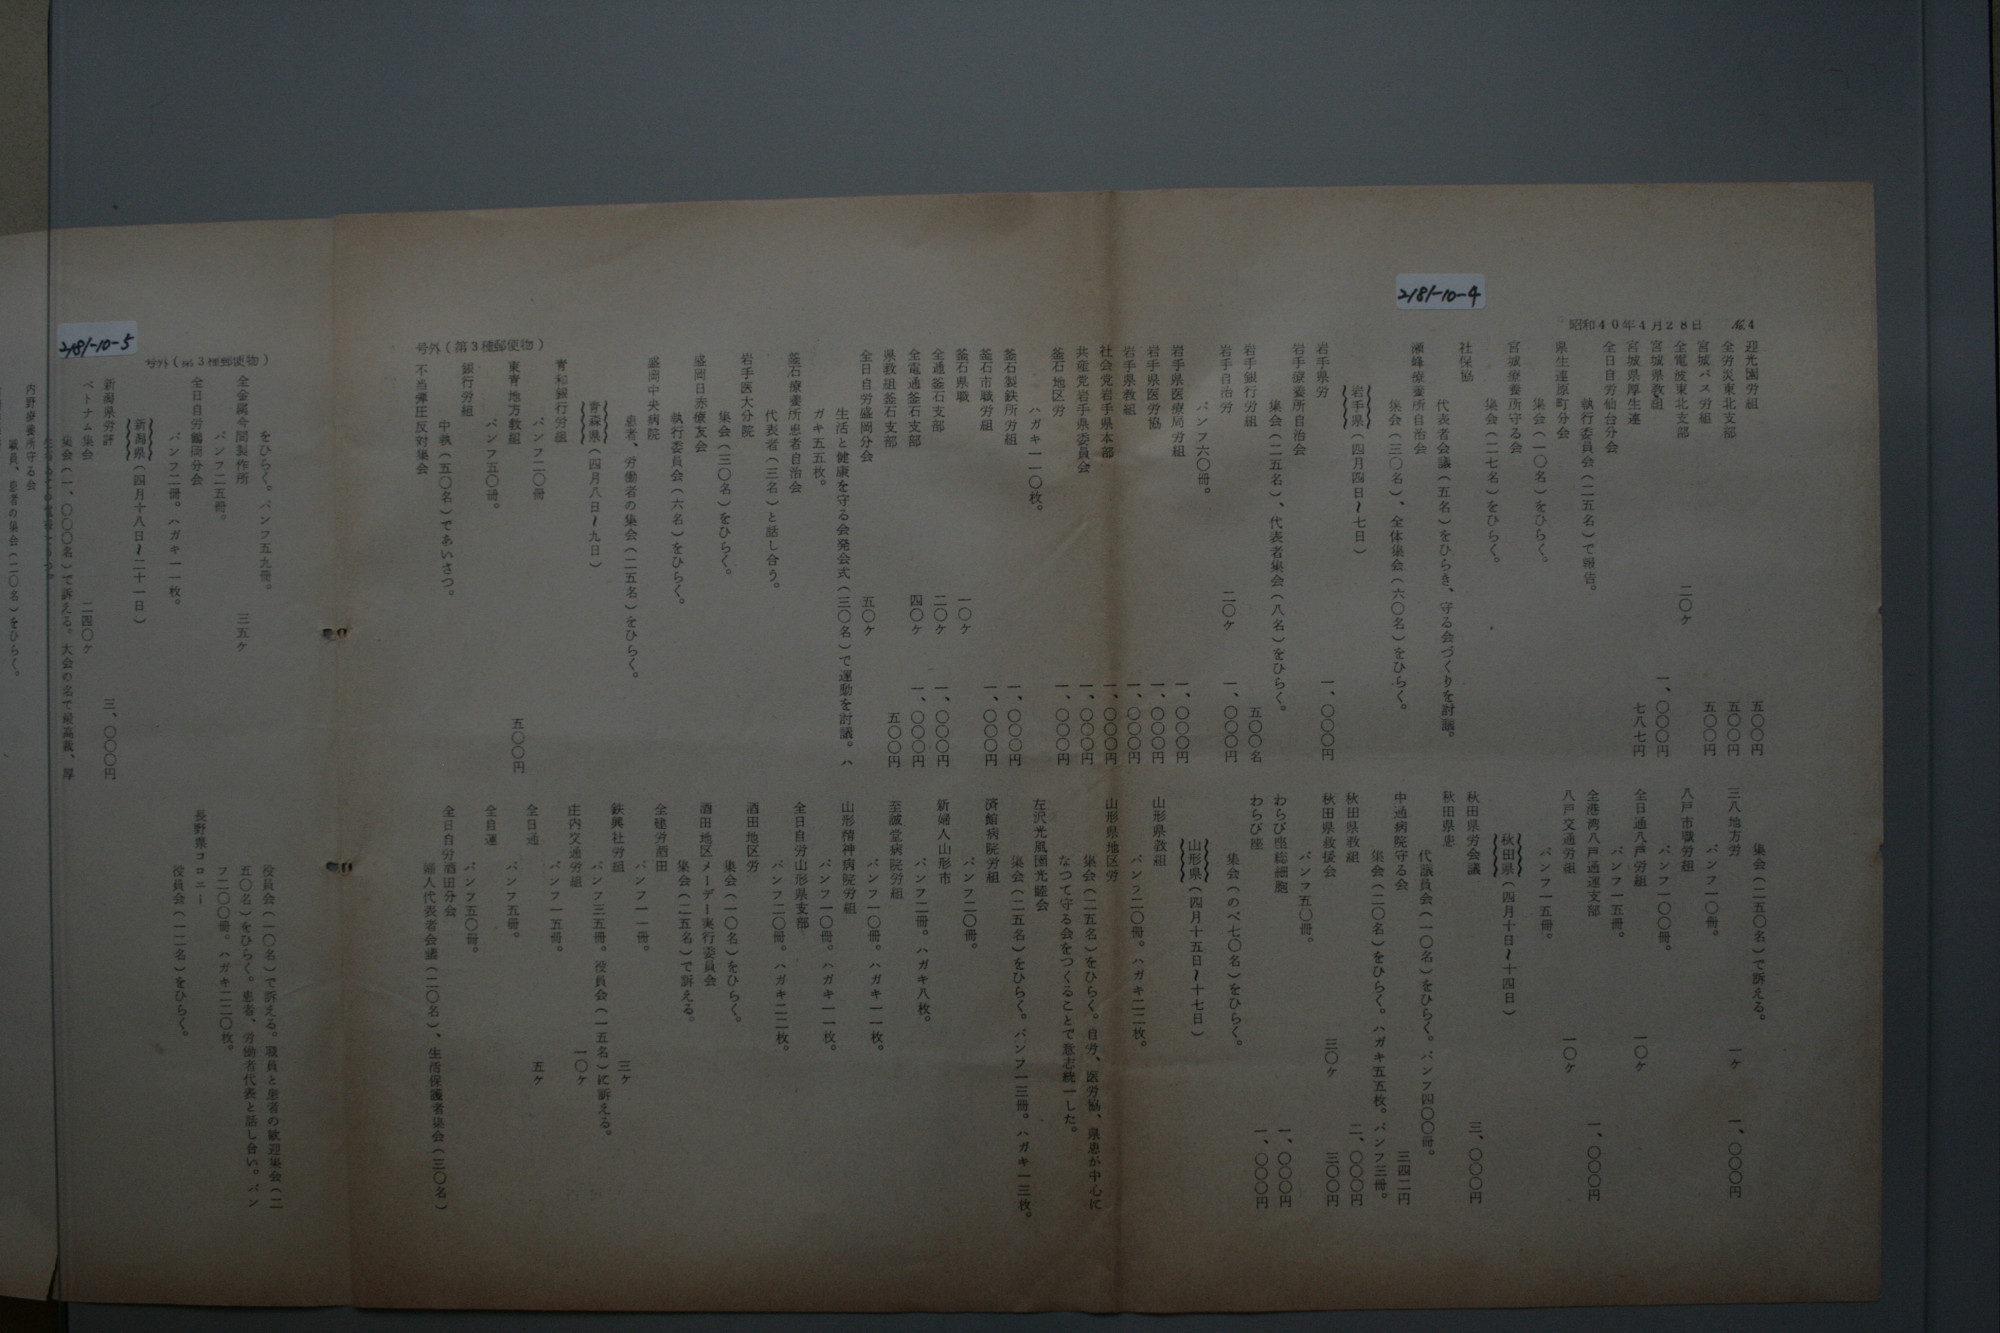 2181-10-4
昭和40年4月28日　№4
迎光園労組　五〇〇円
全労災東北支部　五〇〇円
宮城バス労組　五〇〇円
全電波東北支部　二〇ケ
宮城県教組　一、〇〇〇円
宮城県厚生連　七八七円
全日自労仙台分会
執行委員会（二五名）で報告。
県生連原町分会
集会（一〇名）をひらく。
宮城療養所守る会
集会（二七名）をひらく。
社保協
代表者会議（五名）をひらき、守る会づくりを討議。
瀬峰療養所自治会
集会（三〇名）、全体集会（六〇名）をひらく。
岩手県（四月四日〜七日）
岩手県労　一、〇〇〇円
岩手療養所自治会
集会（二五名）、代表者集会（八名）をひらく。
岩手銀行労組　五〇〇名
岩手自治労　二〇ケ　一、〇〇〇円
パンフ六〇冊。
岩手県医療局労組　一、〇〇〇円
岩手県医労協　一、〇〇〇円
岩手県教組　一、〇〇〇円
社会党岩手県本部　一、〇〇〇円
共産党岩手県委員会　一、〇〇〇円
釜石地区労　一、〇〇〇円
ハガキ一一〇枚。
釜石製鉄所労組　一、〇〇〇円
釜石市職労組　一、〇〇〇円
釜石県職　一〇ケ
全逓釜石支部　二〇ケ　一、〇〇〇円
全電通釜石支部　四〇ケ　一、〇〇〇円
県教組釜石支部　五〇〇円
全日自労盛岡分会　五〇ケ
生活と健康を守る会発会式（三〇名）で運動を討議。ハ
ガキ五五枚。
釜石療養所患者自治会
代表者（三名）と話し合う。
岩手医大分院
集会（三〇名）をひらく。
盛岡日赤療友会
執行委員会（六名）をひらく。
盛岡中央病院
患者、労働者の集会（二五名）をひらく。
青森県（四月八日〜九日）
青和銀行労組
パンフ二〇冊
東青地方教組　五〇〇円
パンフ五〇冊。
銀行労組
中執（五〇名）であいさつ。
不当弾圧反対集会
号外（第3種郵便物）
集会（二五〇名）で訴える。
三八地方労　一ケ　一、〇〇〇円
パンフ一〇冊。
八戸市職労組
パンフ一〇〇冊。
全日通八戸労組　一〇ケ
パンフ一五冊。
全港湾八戸通運支部　一、〇〇〇円
八戸交通労組　一〇ケ
パンフ一五冊。
秋田県（四月十日〜十四日）
秋田県労会議　三、〇〇〇円
秋田県患
代議員会（一〇名）をひらく。パンフ四〇〇冊。
中通病院守る会　三四二円
集会（二〇名）をひらく。ハガキ五五枚。パンフ三冊。
秋田県教組　二、〇〇〇円
秋田県救援会　三〇ケ　三〇〇円
パンフ五〇冊。
わらび座総細胞　一、〇〇〇円
わらび座　一、〇〇〇円
集会（のべ七〇名）をひらく。
山形県（四月十五日〜十七日）
山形県教組
パンフ二〇冊。ハガキ二二枚。
山形県地区労
集会（二五名）をひらく。自労、医労協、県患が中心に
なつて守る会をつくることで意志統一した。
左沢光風園光睦会
集会（二五名）をひらく。パンフ一三冊。ハガキ一三枚。
済館病院労組
パンフ二〇冊。
新婦人山形市
パンフ二冊。ハガキ八枚。
至誠堂病院労組
パンフ一〇冊。ハガキ一一枚。
山形精神病院労組
パンフ一〇冊。ハガキ一一枚。
全日自労山形県支部
パンフ二〇冊。ハガキ二二枚。
酒田地区労
集会（一〇名）をひらく。
酒田地区メーデー実行委員会
集会（二五名）で訴える。
全建労酒田
パンフ一一冊。
鉄興社労組　三ケ
パンフ三五冊。役員会（一五名）に訴える。
庄内交通労組　一〇ケ
パンフ一五冊。
全日通　五ケ
パンフ五冊。
全自運
パンフ五〇冊。
全日自労酒田分会
婦人代表者会議（二〇名）、生活保護者集会（三〇名）
2181-10-5
号外（第3種郵便物）
をひらく。パンフ五九冊。
全金属今間製作所　三五ケ
パンフ二五冊。
全日自労鶴岡分会
パンフ二冊。ハガキ一一枚。
新潟県（四月十八日〜二十一日）
新潟県労評　三、〇〇〇円
ベトナム集会　二四〇ケ
集会（一、〇〇〇名）で訴える。大会の名で最高裁、厚
内野療養所守る会
職員、患者の集会（二〇名）をひらく。
役員会（一〇名）で訴える。職員と患者の歓迎集会（二
五〇名）をひらく。患者、労働者代表と話し合い。パン
フ二〇〇冊。ハガキ二二〇枚。
長野県コロニー
役員会（一二名）をひらく。